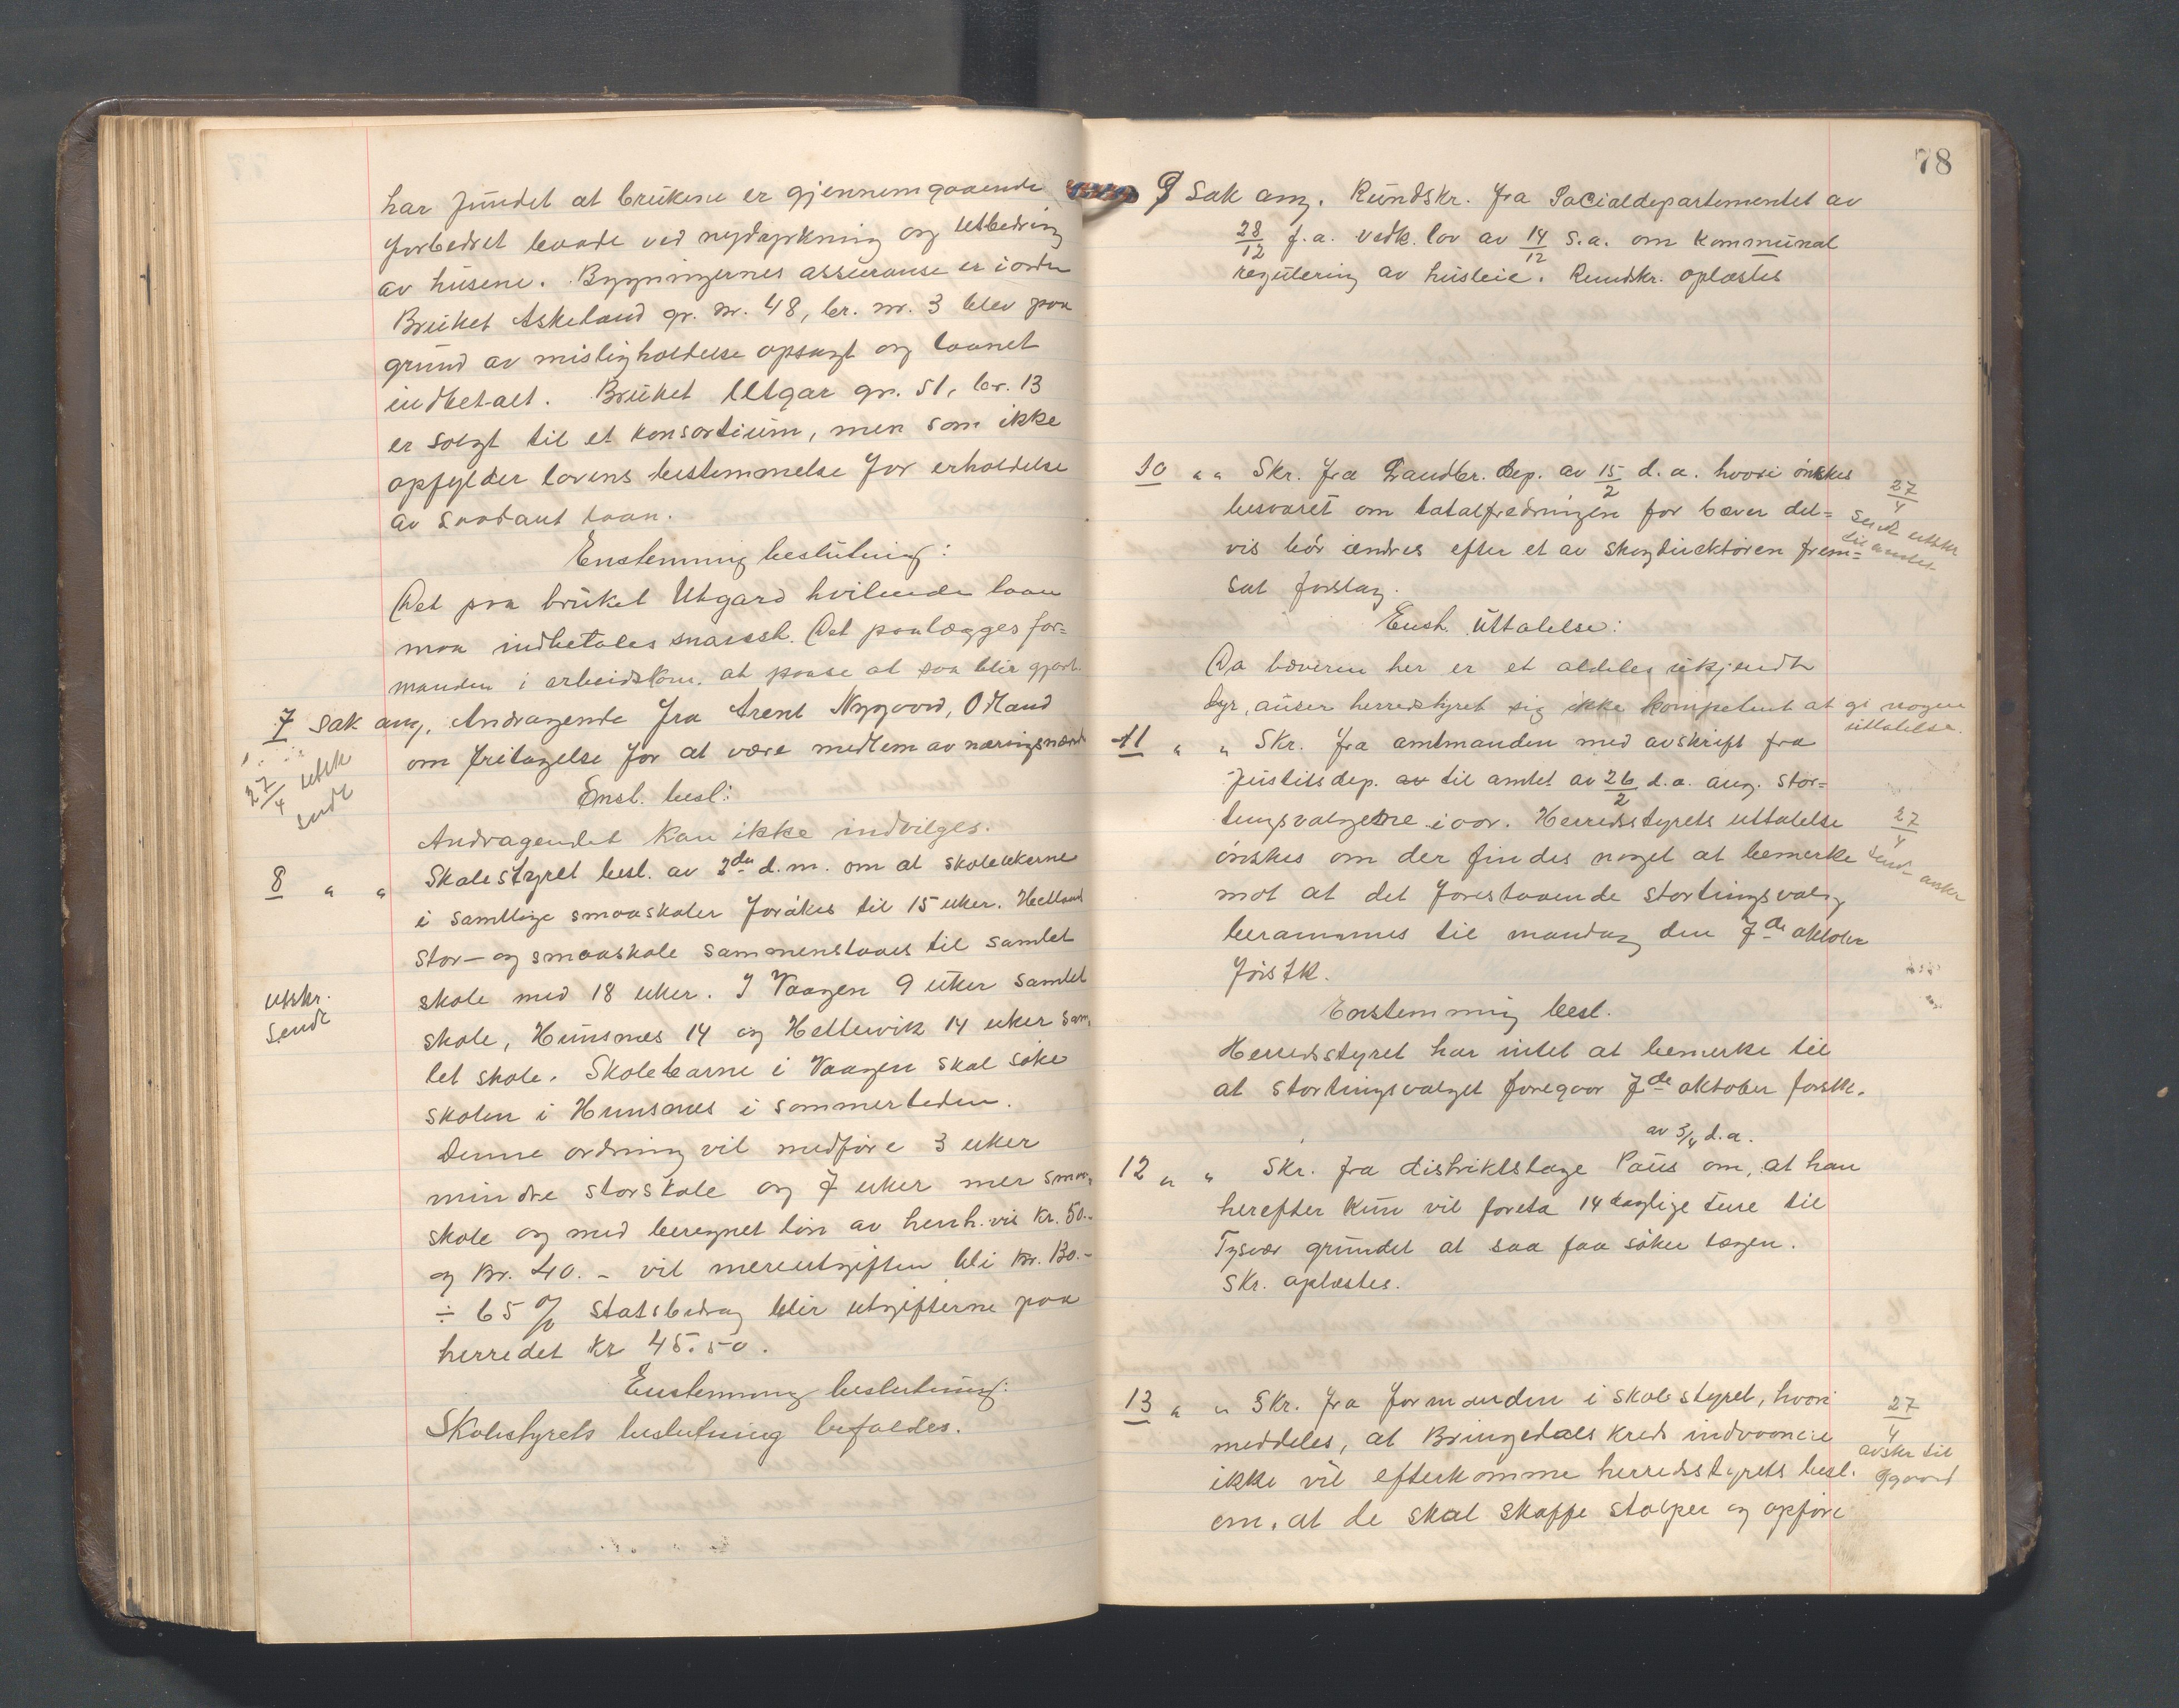 har fundet at brukene er gjennemgaaende
forbedret baade ved nydyrkning og utbedring
av husene. Bygningernes assuranse er i orden
Bruket Askeland gr. nr. 48, br. nr. 3 blev paa
grund av misligholdelse opsagt og laanet
indbetalt. Bruket Utgar gr. 51, br. 13
er solgt til et konsortium, men som ikke
opfylder lovens bestemmelse for erholdelse
av saadant laan.
Enstemmig beslutning:
Det paa bruket Utgard hvilende laan
maa indbetales snarest. Det paalægges for=
manden i arbeidskom. at paase at saa blir gjort.
7 Sak ang. Andragende fra Arent Nygaard, Odland
om fritagelse for at være medlem av næringsnævnd
27/4 utskr.
sendt
Enst. besl:
Andragendet kan ikke indvilges.
8 " " Skolestyret besl. av 2den d.m. om at skoleukerne
i samtlige smaaskoler forökes til 15 uker. Hetland
stor- og smaaskole sammenslaaes til samlet
skole med 18 uker. I Vaagen 9 uker samlet
utskr.
sendt
skole, Hunsnes 14 og Hettervik 14 uker sam-
let skole. Skolebarne i Vaagen skal söke
skolen i Hunsnes i sommertiden.
Denne ordning vil medföre 3 uker
mindre storskole og 7 uker mer smaa-
skole og med beregnet lön av henh.vis kr. 50.-
og kr. 40.- vil merutgiften bli kr. 130.-
÷ 65 % statsbidrag blir utgifterne paa
herredet kr 45.50.
Enstemmig beslutning:
Skolestyrets beslutning bifaldes.
78
9 Sak ang. Rundskr. fra Socialdepartementet av
28/12 f.a. vedk. lov av 14/12 s.a. om kommunal
regulering av husleie. Rundskr. oplæstes
10 " " Skr. fra Landbr. dep. av 15/2 d.a. hvori önskes
besvaret om totalfredningen for bæver del=
vis bör ændres efter et av skogdirektören frem=
sat forslag.
27/4
sendt utskr
til amtet
Enst. uttalelse:
Da bæveren her er et aldeles ukjendt
dyr, anser herredstyret sig ikke kompetent at gi nogen
uttalelse.
11 " " Skr. fra amtmanden med avskrift fra
Justitsdep. av til amtet av 26/2 d.a. ang. stor=
tingsvalgene iaar. Herredsstyrets uttalelse
önskes om der findes noget at bemerke
mot at det forestaaende stortingsvalg
berammes til mandag den 7de oktober
förstk.
27/4
sendt avskr
Enstemmig besl.
Herredsstyret har intet at bemerke til
at stortingsvalget foregaar 7de oktober förstk.
av 3/4 d.a.
12 " " Skr. fra distriktslæge Paus om, at han
herefter kun vil foreta 14 daglige ture til
Tysvær grundet at saa faa söker lægen.
Skr. oplæstes.
13 " " Skr. fra formanden i skolestyret, hvori
meddeles, at Bringedals kreds indvaanere
ikke vil efterkomme herredsstyrets besl.
om, at de skal skaffe stolper og opföre
27/4
avskr til